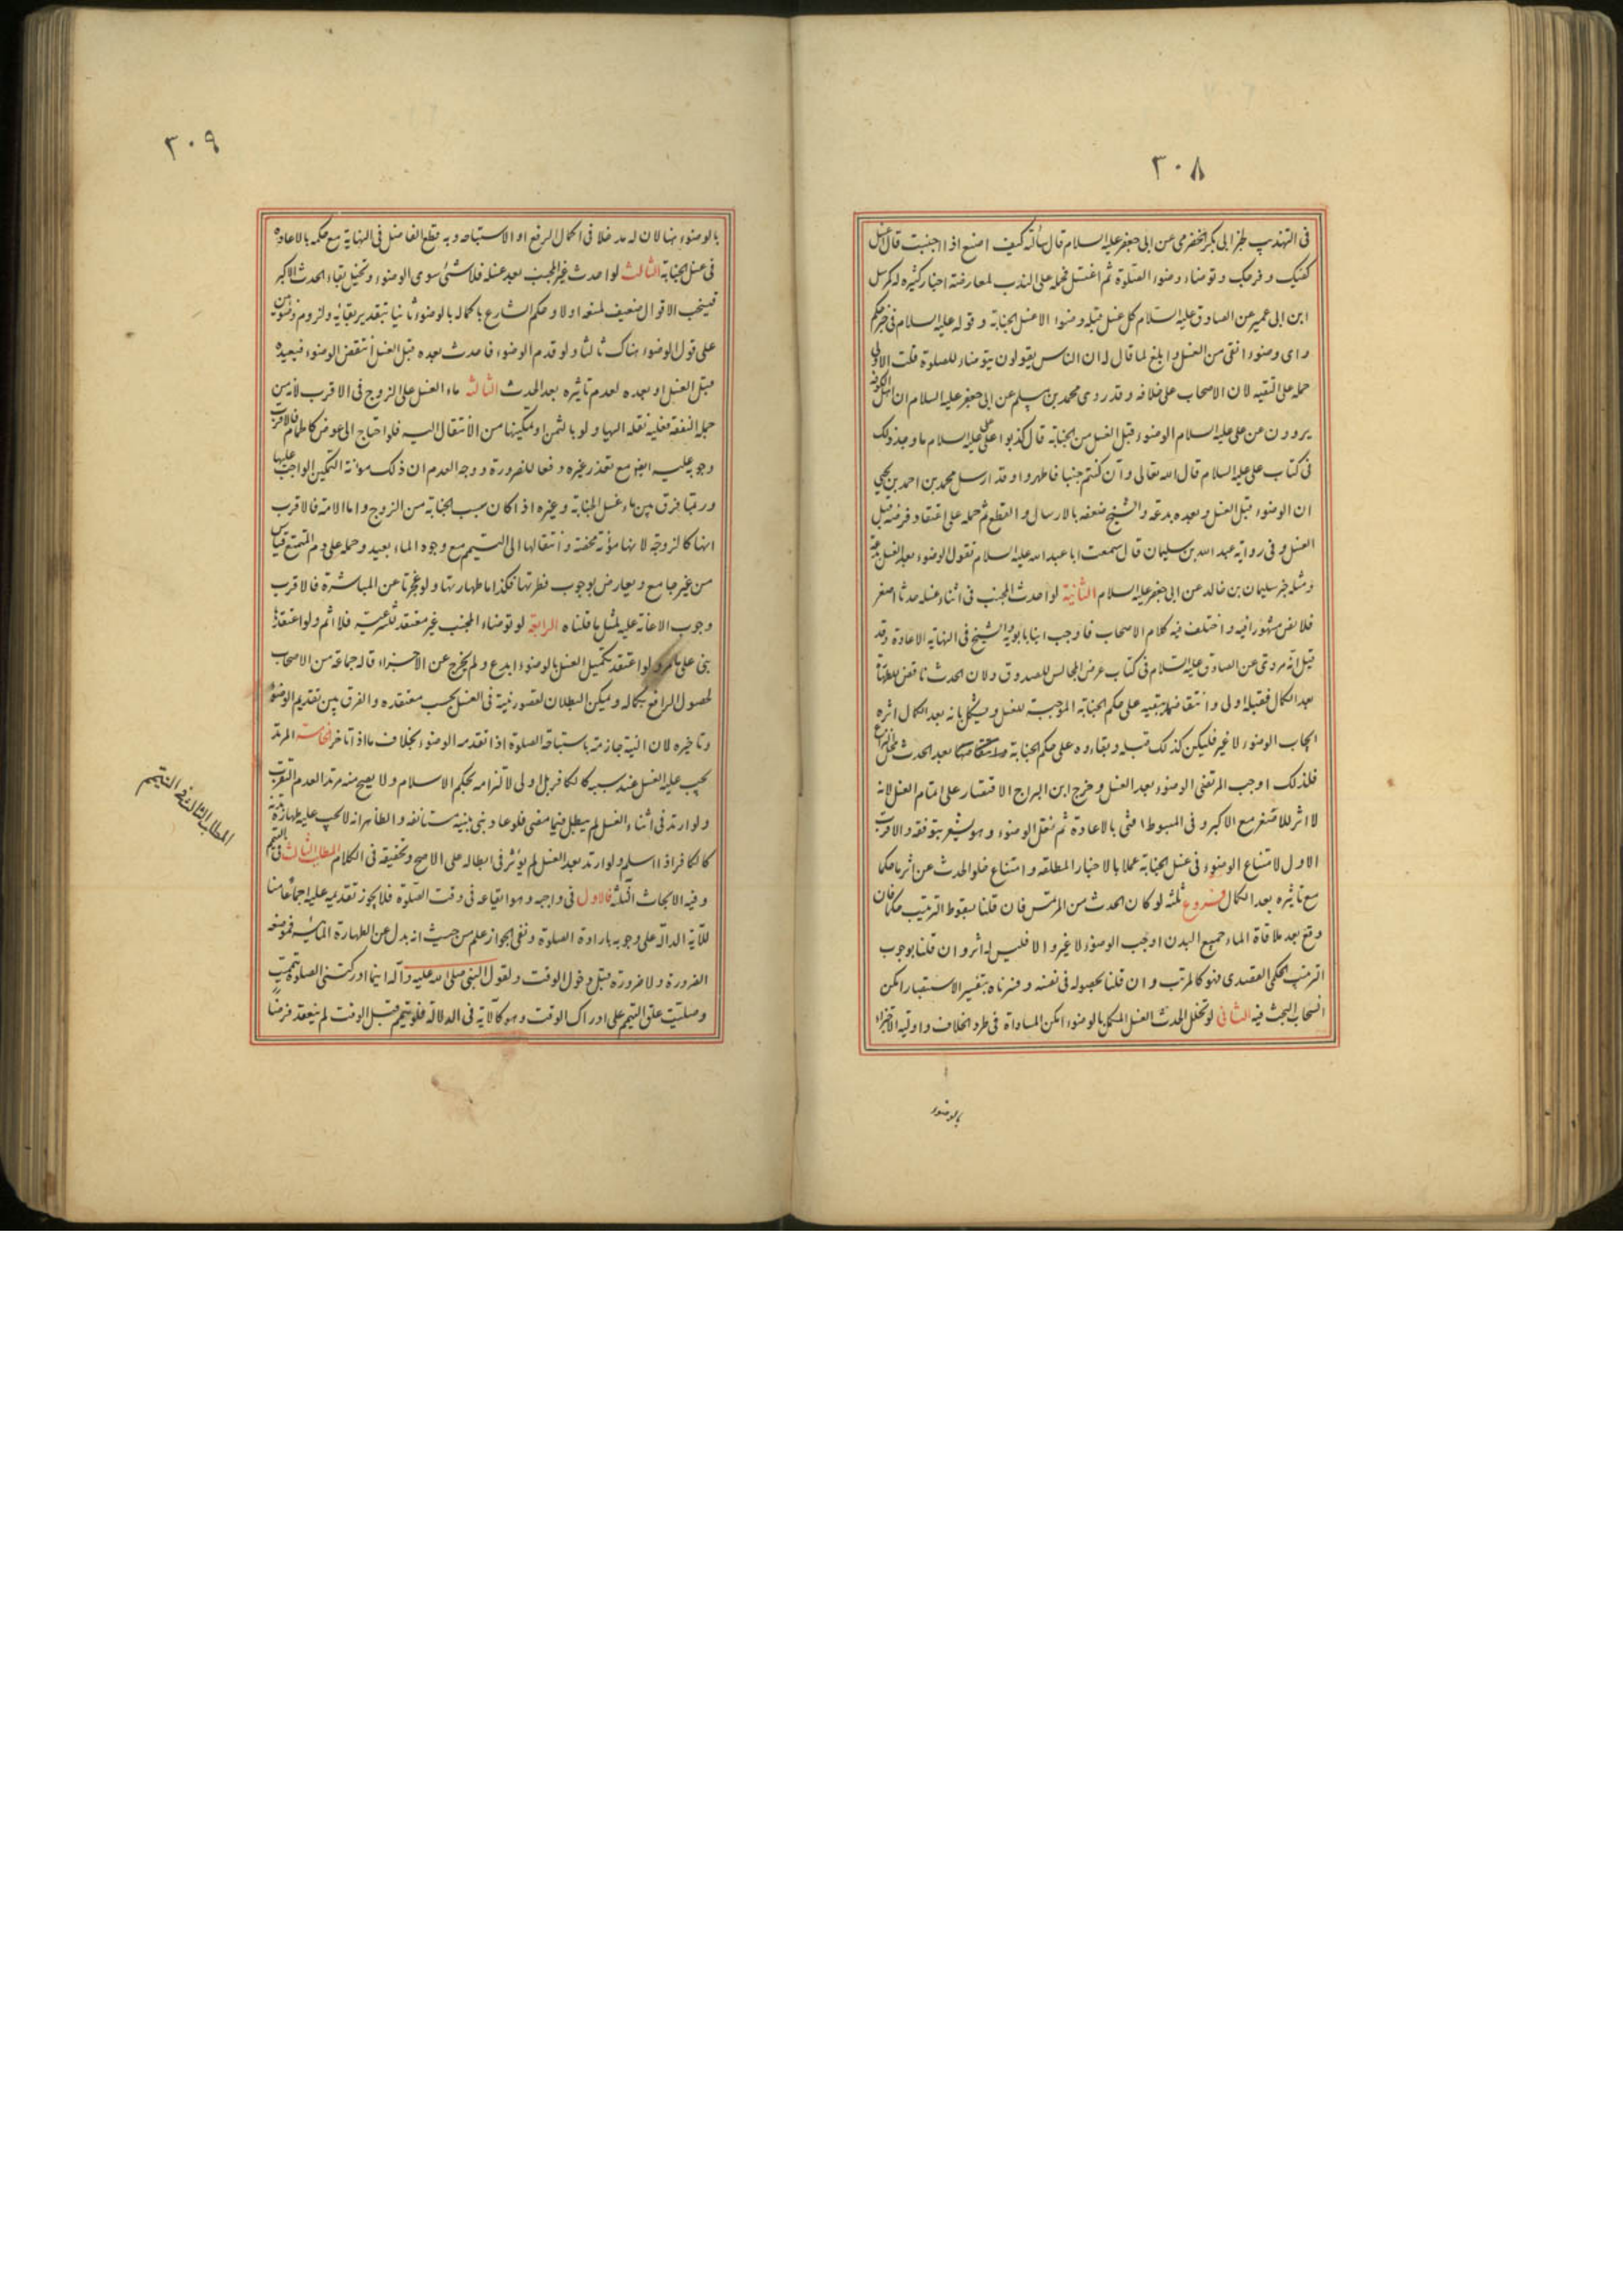 ٣٠٨
فى التهذيب لخبر ابى بكر الحضرمى عن ابى جعفر عليه السلام قال سألته كيف اصنع اذا اجنبت قال اغسل
كفيك و فرجك و توضاء وضوء الصلوة ثم اغتسل فحمله على الندب لمعارضته اخبار كثيرة له كمرسل
ابن ابى عمير عن الصادق عليه السلام كل غسل قبله وضوء الا غسل الجنابة و قوله عليه السلام فى خبر حكم
واى وضوء انقى من الغسل و ابلغ لما قال له ان الناس يقولون يتوضاء للصلوة قلت الاولى
حمله على التقيه لان الاصحاب على خلافه و قد روى محمد بن مسلم عن ابى جعفر عليه السلام ان اهل الكوفه
يروون عن على عليه السلام الوضوء قبل الغسل من الجنابة قال كذبوا على على عليه السلام ما وجد ذلك
فى كتاب على عليه السلام قال الله تعالى و ان كنتم جنبا فاطهروا و قد ارسل محمد بن احمد بن يحيى
ان الوضوء قبل الغسل و بعده بدعه و الشيخ ضعفه بالارسال و القطع ثم حمله على اعتقاد فرضه قبل
الغسل و فى رواية عبد الله بن سليمان قال سمعت ابا عبد الله عليه السلام تقول الوضوء بعد الغسل بدعة
و مثله خبر سليمان بن خالد عن ابى جعفر عليه السلام الثانية لو احدث الجنب فى اثناء غسله حدثا اصغر
فلا نص مشهورا فيه و اختلف فيه كلام الاصحاب فاوجب ابنا بابويه و الشيخ فى النهاية الاعادة و قد
قيل انه مروى عن الصادق عليه السلام فى كتاب عرض المجالس للصدوق و لان الحدث ناقض للطهارة
بعد الكمال فقبله اولى و انتقاضها يبقيه على حكم الجنابة الموجبة للغسل و يشكل بانه بعد الكمال اثره
ايجاب الوضوء لا غير فليكن كذلك قبله و بقاءه على حكم الجنابة بعد الحدث
فلذلك اوجب المرتضى الوضوء بعد الغسل و خرج ابن البراج الاقتصار على اتمام الغسل لانه
لا اثر للاصغر مع الاكبر و فى المبسوط افتى بالاعادة ثم نقل الوضوء و هو يشعر بتوقفه و الاقرب
الاول لامتناع الوضوء فى غسل الجنابة عملا بالاخبار المطلقه و امتناع خلو الحدث عن اثر ما حكما
مع تاثيره بعد الكمال فروع ثلثه لو كان الحدث من المرتمس فان قلنا بسقوط الترتيب حكما فان
وقع بعد ملاقاة الماء جميع البدن اوجب الوضوء لا غير و الا فليس له اثر و ان قلنا بوجوب
الترتيب الحكمى القصدى فهو كالمرتب و ان قلنا بحصوله فى نفسه و فسرناه بتفسير الاستبصار امكن
انسحاب البحث فيه الثانى لو تخلل الحدث الغسل المكمل بالوضوء امكن المساواة فى طرد الخلاف و اولية الاجزاء
بالوضوء
٣٠٩
بالوضوء هنا لان له مدخلا فى اكمال الرفع او الاستباحه و به قطع الفاضل فى النهاية مع حكمه بالاعاده
فى غسل الجنابة الثالث لو احدث غير الجنب بعد غسله فلا شئ سوى الوضوء و تخيل بقاء الحدث الاكبر
فينسحب الاقوال ضعيف لمنعه اولا و حكم الشارع باكماله بالوضوء ثانيا بتقدير بقائه و لزوم وضوئين
على قول الوضوء هناك ثالثا و لو قدم الوضوء فاحدث بعده قبل الغسل انتقض الوضوء فيعيده
قبل الغسل او بعده لعدم تاثيره بعد الحدث الثالثة ماء الغسل على الزوج فى الاقرب لانه من
جملة النفقة فعليه نقله اليها و لو بالثمن او تمكينها من الانتقال اليه فلو احتاج الى عوض كالحمام فالاقرب
وجوبه عليه ايضا مع تعذر غيره دفعا للضرورة و وجه العدم ان ذلك مونة التمكين الواجب عليها
و ربما فرق بين ماء غسل الجنابة و غيره اذا كان سبب الجنابة من الزوج و اما الامة فالاقرب
انها كالزوجة لانها مؤنة محضة و انتقالها الى التيمم مع وجود الماء بعيد و حمله على دم المتمتع قياس
من غير جامع و يعارض بوجوب فطرتها فكذا ماء طهارتها و لو عجزتا عن المباشرة فالاقرب
وجوب الاعانة عليه لمثل ما قلناه الرابعة لو توضاء الجنب غير معتقد شرعيته فلا اثم و لو اعتقدها
بنى على ما مر و لو اعتقد تكميل الغسل بالوضوء ابدع و لم يخرج عن الاجزاء قاله جماعة من الاصحاب
لحصول الرافع بكماله و يمكن البطلان لقصور نيته فى الغسل بحسب معتقده و الفرق بين تقديم الوضوء
و تاخيره لان النية جازمة باستباحة الصلوة اذا تقدمه الوضوء بخلاف ما اذا تاخر الخامسة المرتد
يجب عليه الغسل عند سببه كالكافر بل اولى لالتزامه بحكم الاسلام و لا يصح منه مرتدا لعدم التقرب
و لو ارتد فى اثناء الغسل لم يبطل فيما مضى فلو عاد بنى بنية مستانفه و الظاهر انه لا يجب عليه طهارة بدنه
كالكافر اذا اسلم و لو ارتد بعد الغسل لم يؤثر فى ابطاله على الاصح و تحقيقه فى الكلام المطلب الثالث فى التيمم
و فيه الابحاث الثلثة فالاول فى واجبه و هو ايقاعه فى وقت الصلوة فلا يجوز تقديمه عليه اجماعا منا
للآية الدالة على وجوبه بارادة الصلوة و نفى الجواز علم من حيث انه بدل عن الطهارة المائية فموضعه
الضرورة و لا ضرورة قبل دخول الوقت و لقول النبى صلى الله عليه و آله اينما ادركتنى الصلوة تيممت
و صليت علق التيمم على ادراك الوقت و هو كالآية فى الدلالة فلو تيمم قبل الوقت لم ينعقد فرضا
المطلب الثالث فى التيمم